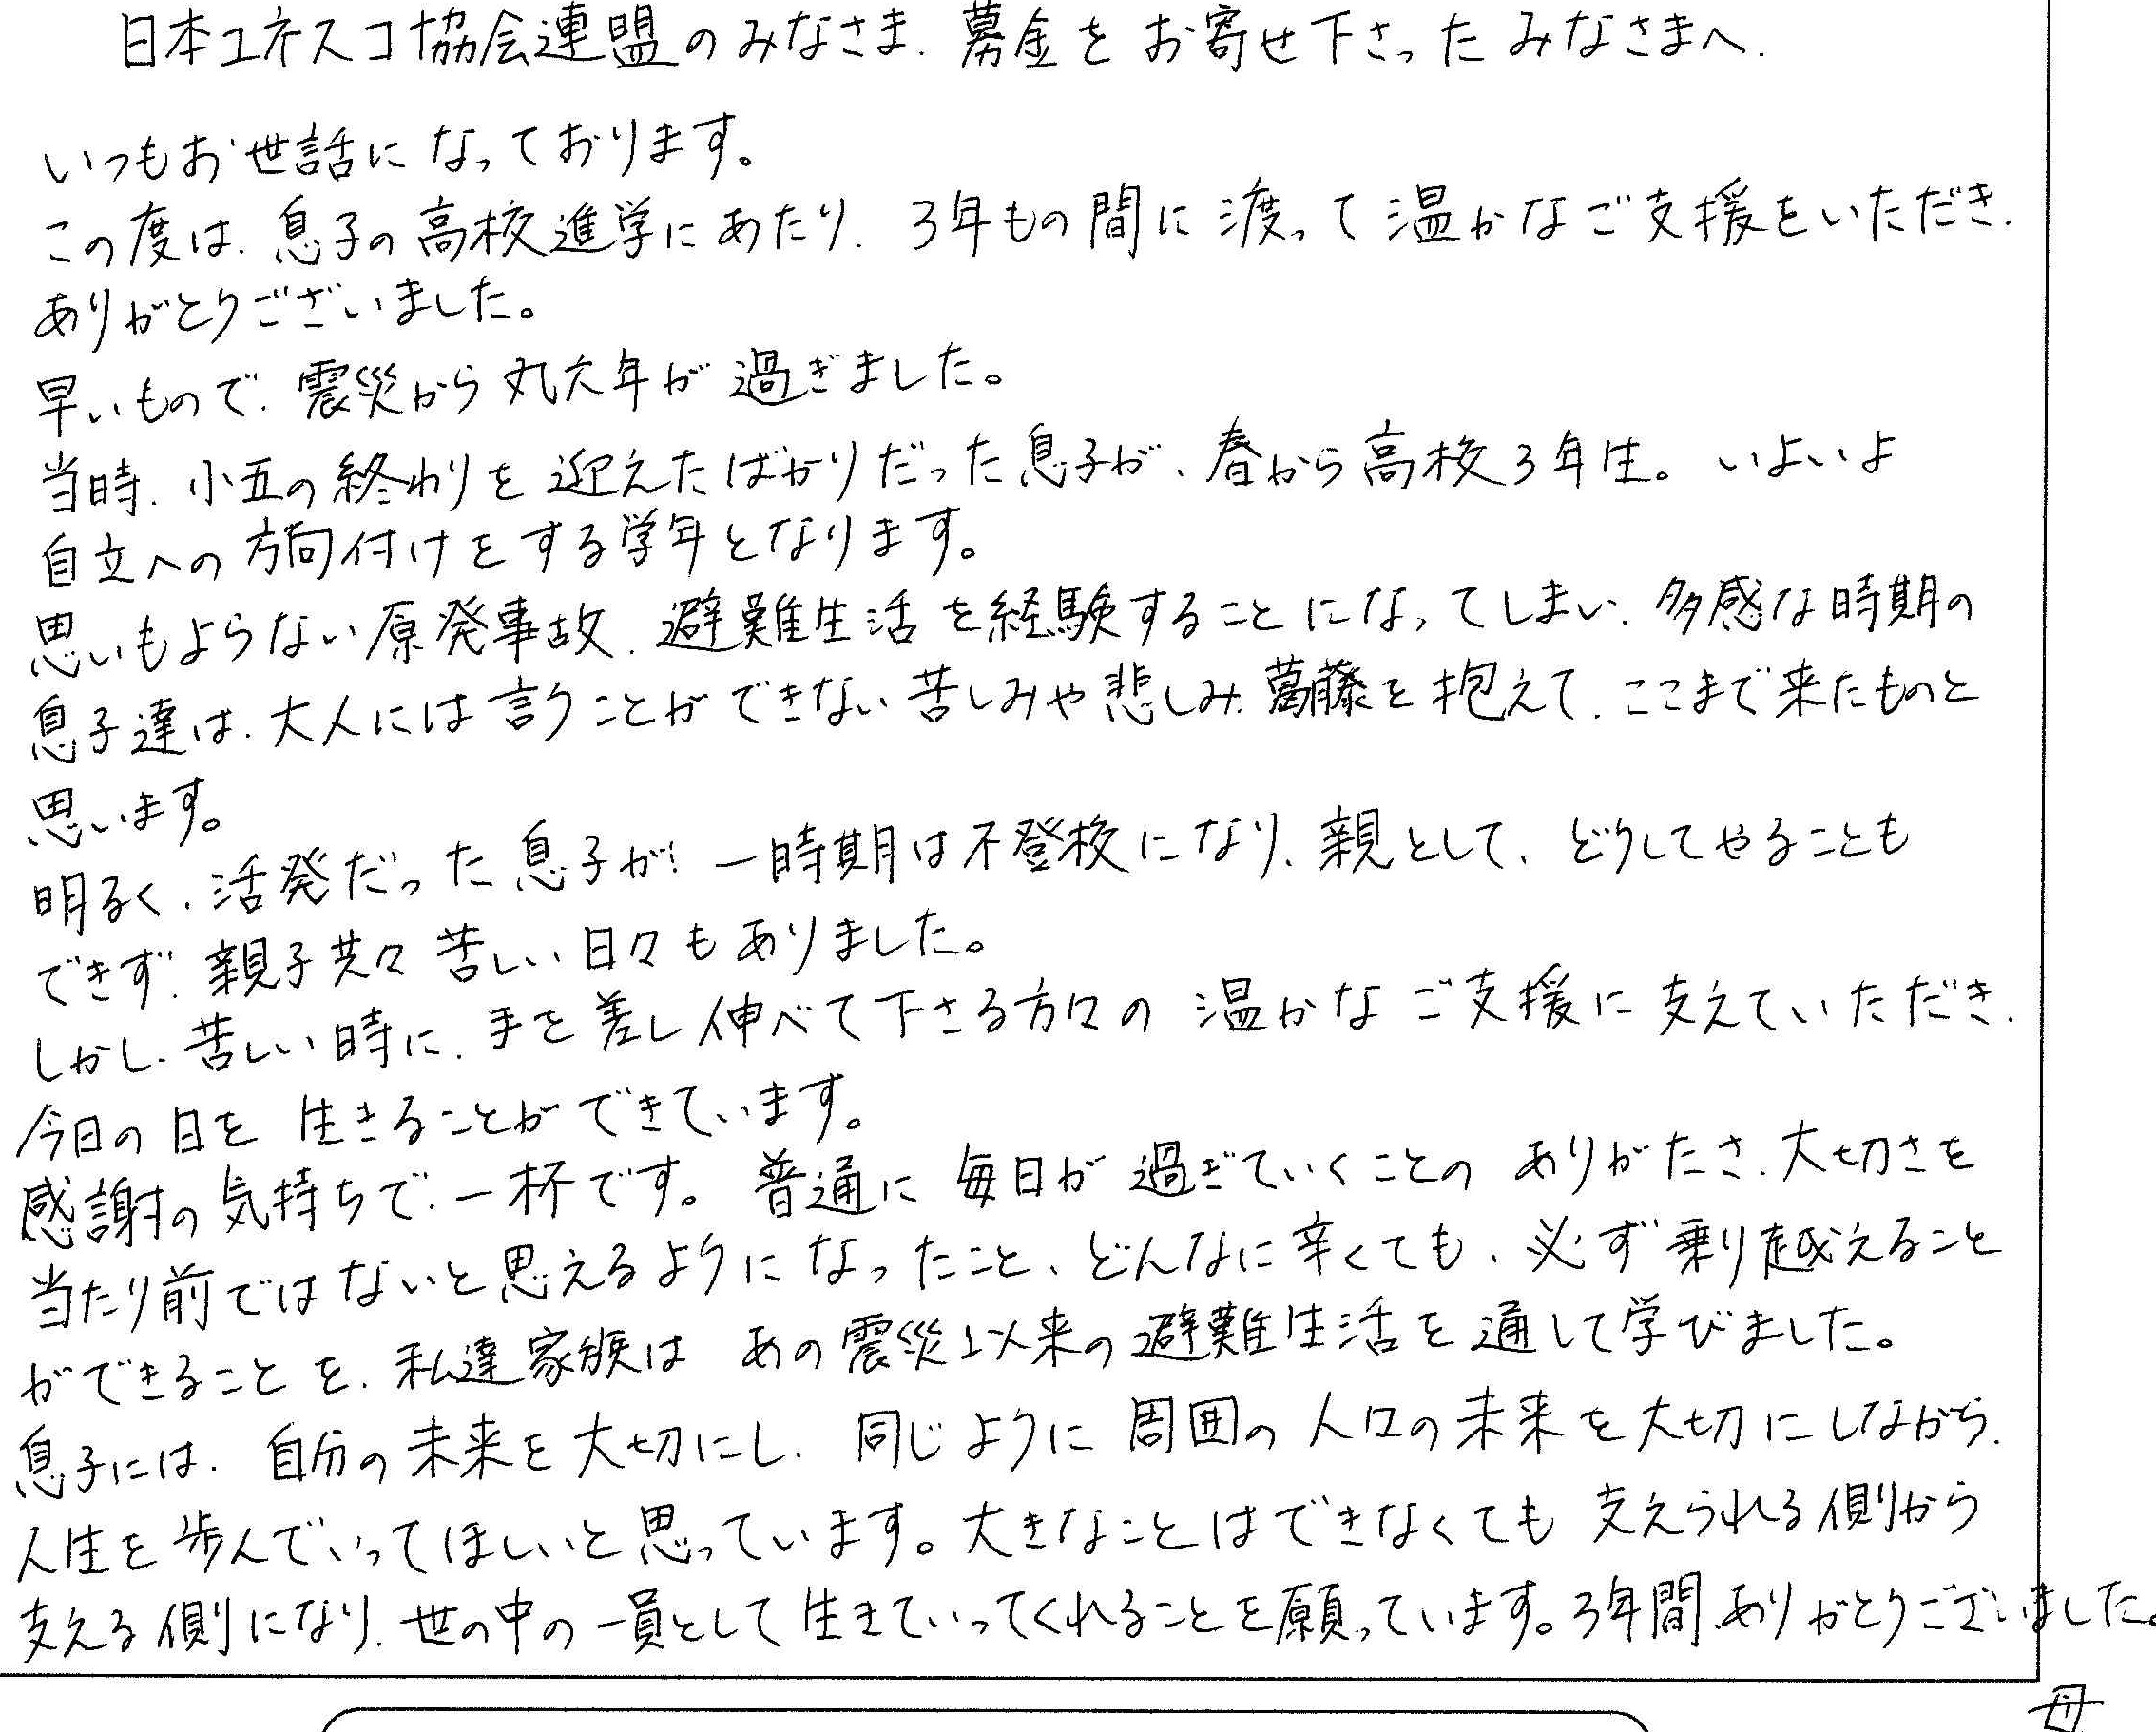 日本ユネスコ協会連盟のみなさま、募金をお寄せ下さったみなさまへ、
いつもお世話になっております。
この度は、息子の高校進学にあたり、3年もの間に渡って温かなご支援をいただき、
ありがとうございました。
早いもので、震災から丸六年が過ぎました。
当時、小五の終わりを迎えたばかりだった息子が、春から高校3年生。いよいよ
自立への方向付けをする学年となります。
思いもよらない原発事故、避難生活を経験することになってしまい、多感な時期の
息子達は、大人には言うことができない苦しみや悲しみ、葛藤を抱えて、ここまで来たものと
思います。
明るく、活発だった息子が、一時期は不登校になり、親として、どうしてやることも
できず、親子共々苦しい日々もありました。
しかし、苦しい時に、手を差し伸べて下さる方々の温かなご支援に支えていただき、
今日の日を生きることができています。
感謝の気持ちで、一杯です。普通に毎日が過ぎていくことのありがたさ、大切さを
当たり前ではないと思えるようになったこと、どんなに辛くても、必ず乗り越えること
ができることを、私達家族はあの震災以来の避難生活を通して学びました。
息子には、自分の未来を大切にし、同じように周囲の人々の未来を大切にしながら、
人生を歩んでいってほしいと思っています。大きなことはできなくても支えられる側から
支える側になり、世の中の一員として生きていってくれることを願っています。3年間、ありがとうございました。
母